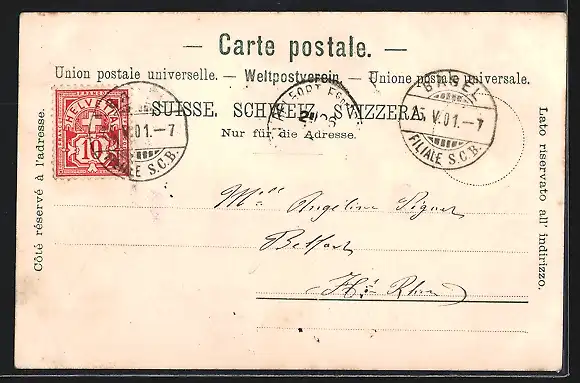 — Carte postale. —
Union postale universelle. — Weltpostverein. — Unione postale universale.
SUISSE. SCHWEIZ. SVIZZERA.
Nur für die Adresse.
Côté réservé à l'adresse.
Lato riservato all' indirizzo.
FRANCO
HELVETIA
10
V.01.–7
FILIALE S.C.B.
BELFORT
BASEL
V.01.–7
FILIALE S.C.B.
Mlle Angéline
Belfort
Ht Rhin